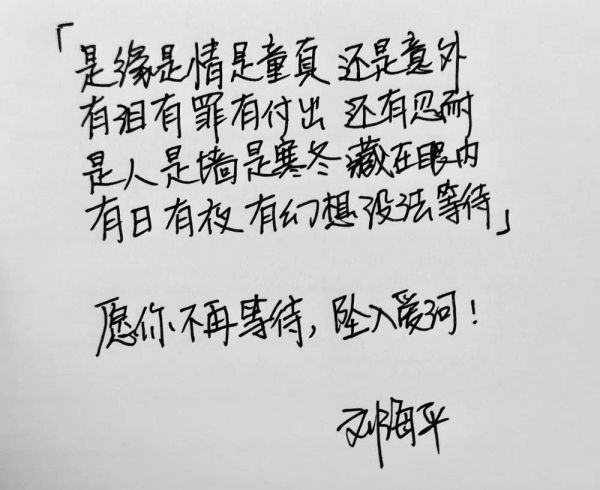 「是缘是情是童真 还是意外
有泪有罪有付出 还有忍耐
是人是墙是寒冬 藏在眼内
有日有夜有幻想 没法等待」
愿你不再等待，坠入爱河！
刘海平